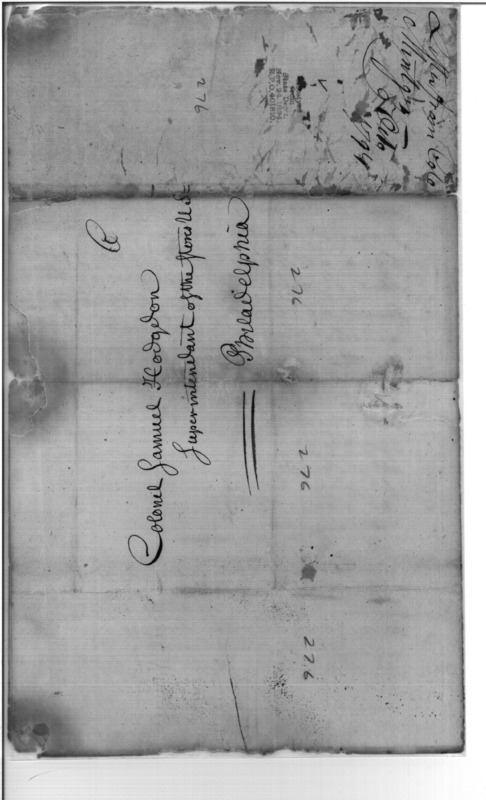 Letter from Colo
1794
276
Colonel Samuel Hodgdon
Superintendant of the stores U.S.
Philadelphia
276
276
276